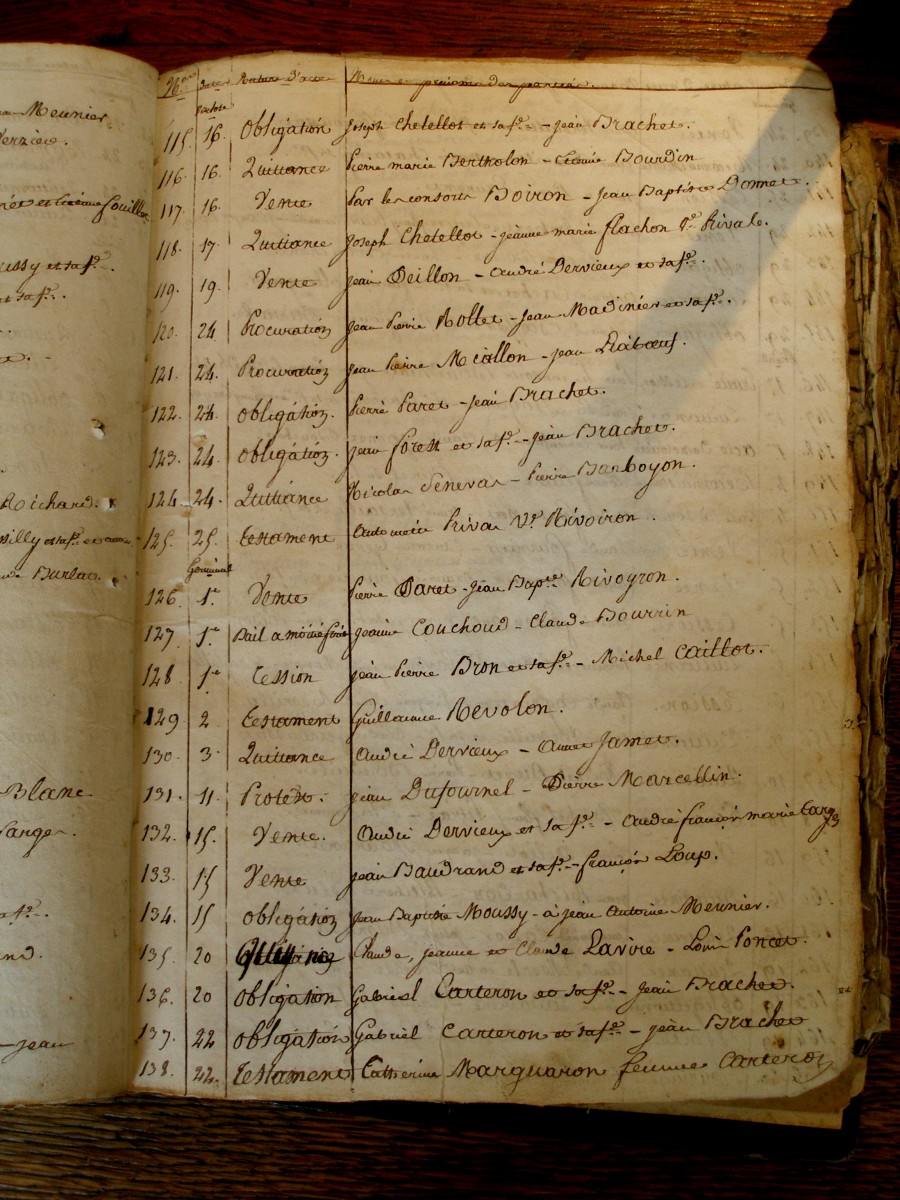 Meunier
Verzieu.
Souillet
ussy et sa fe.
et sa fe.
Richard.
Burlat.
Blanc
sa fe.
and.
jean
Nos Date Nature d'acte Noms et prénoms des parties.
115. 16. Obligation joseph Chetellot et sa fe. - jean Brachet.
116. 16. Quittance Pierre marie Bertholon - Etienne Bourdin
117. 16 Vente Par les consorts Boiron - Jean Baptiste Donnet.
118. 17. Quittance joseph Chetellot - jeanne marie flachon Ve Rivale.
119. 19. Vente jean Deillon - andré Dervieux et sa fe.
120. 24 Procuration jean Pierre Rollet - Jean Madinier et sa fe.
121. 24. Procuration jean Pierre Micollon - jean
122. 24. obligation. Pierre Paret - jean Brachet.
123. 24. obligation. jean forest et sa fe. - jean Brachet.
124. 24. Quittance Nicolas Senevas - Pierre Bonboyon.
125. 25. testament antoinette Privat Ve Rivoiron.
Germinal
126. 1er Vente Pierre Paret - jean Bapte Rivoyron.
127. 1er Bail a moitié fruit jeanne Couchoud - Claude Bourrin
128. 1er Cession jean Pierre Bron et sa fe. - Michel Caillot.
129 2 testament Guillaume Revolon.
130. 3. Quittance andré Dervieux - Jamet.
131. 11. Protest. jean Dufournel - Pierre Marcellin.
132. 15. Vente. andré Dervieux et sa fe. - andré françois marie
133. 15 Vente jean Baudrand et sa fe. - françois Loup.
134. 15 obligation Jean Baptiste Moussy - à jean antoine Meunier.
135. 20 Claude, jeanne et Claude Lavire - Louis Poncet.
136. 20 obligation Gabriel Carteron et sa fe. - jean Brachet.
137. 22 obligation Gabriel Carteron et sa fe. - jean Brachet
138. 22. testament Catherine Marguaron femme Carteron